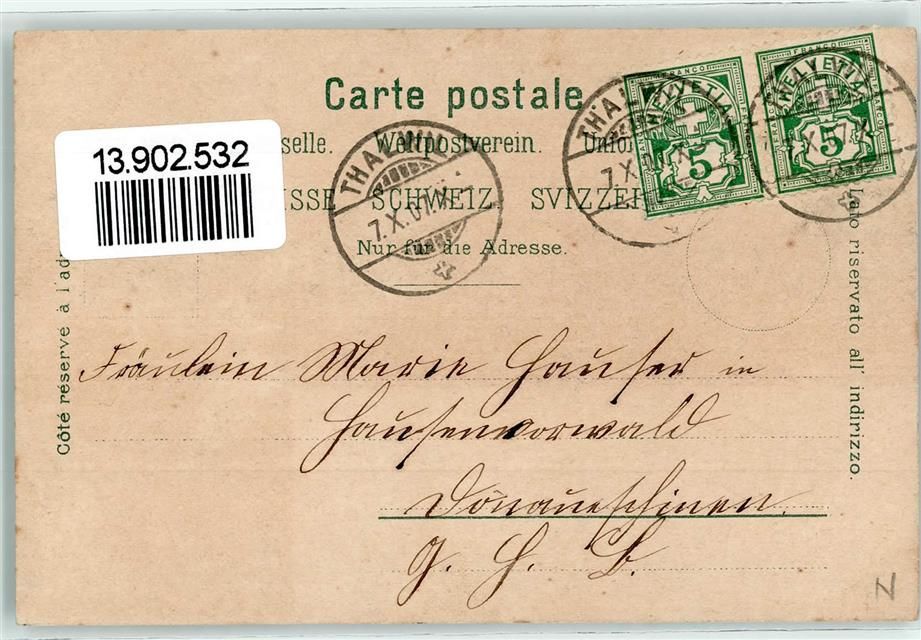 Carte postale
13.902.532
selle. Weltpostverein. Union
ISSE SCHWEIZ SVIZZE
Nur für die Adresse.
THALWIL
7.X.07.
THAL
7.X.
FRANCO
HELVETIA
5
FRANCO
HELVETIA
5
Côté réservé à l'ad
Lato riservato all' indirizzo.
Fräulein Marie Hauser in
Hausenvorwald
Donaueschinen.
G. H. B.
N